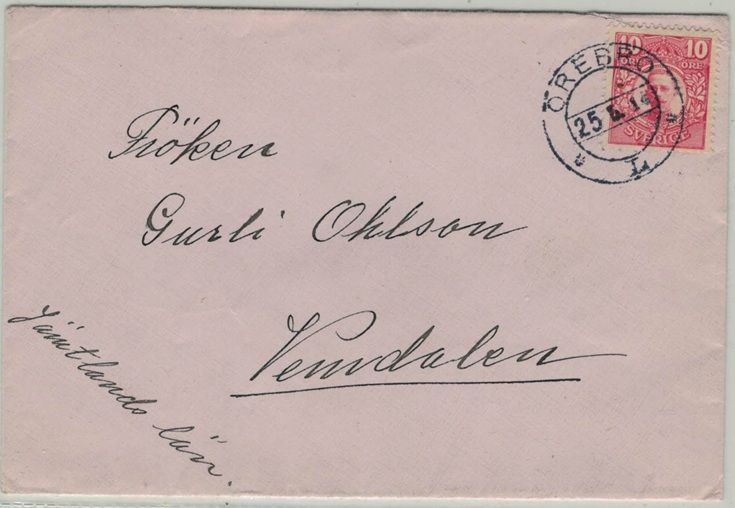 10 10
ÖRE ÖRE
SVERIGE
ÖREBRO
25 5. 14
1
Fröken
Gurli Ohlson
Vemdalen
Jämtlands län.